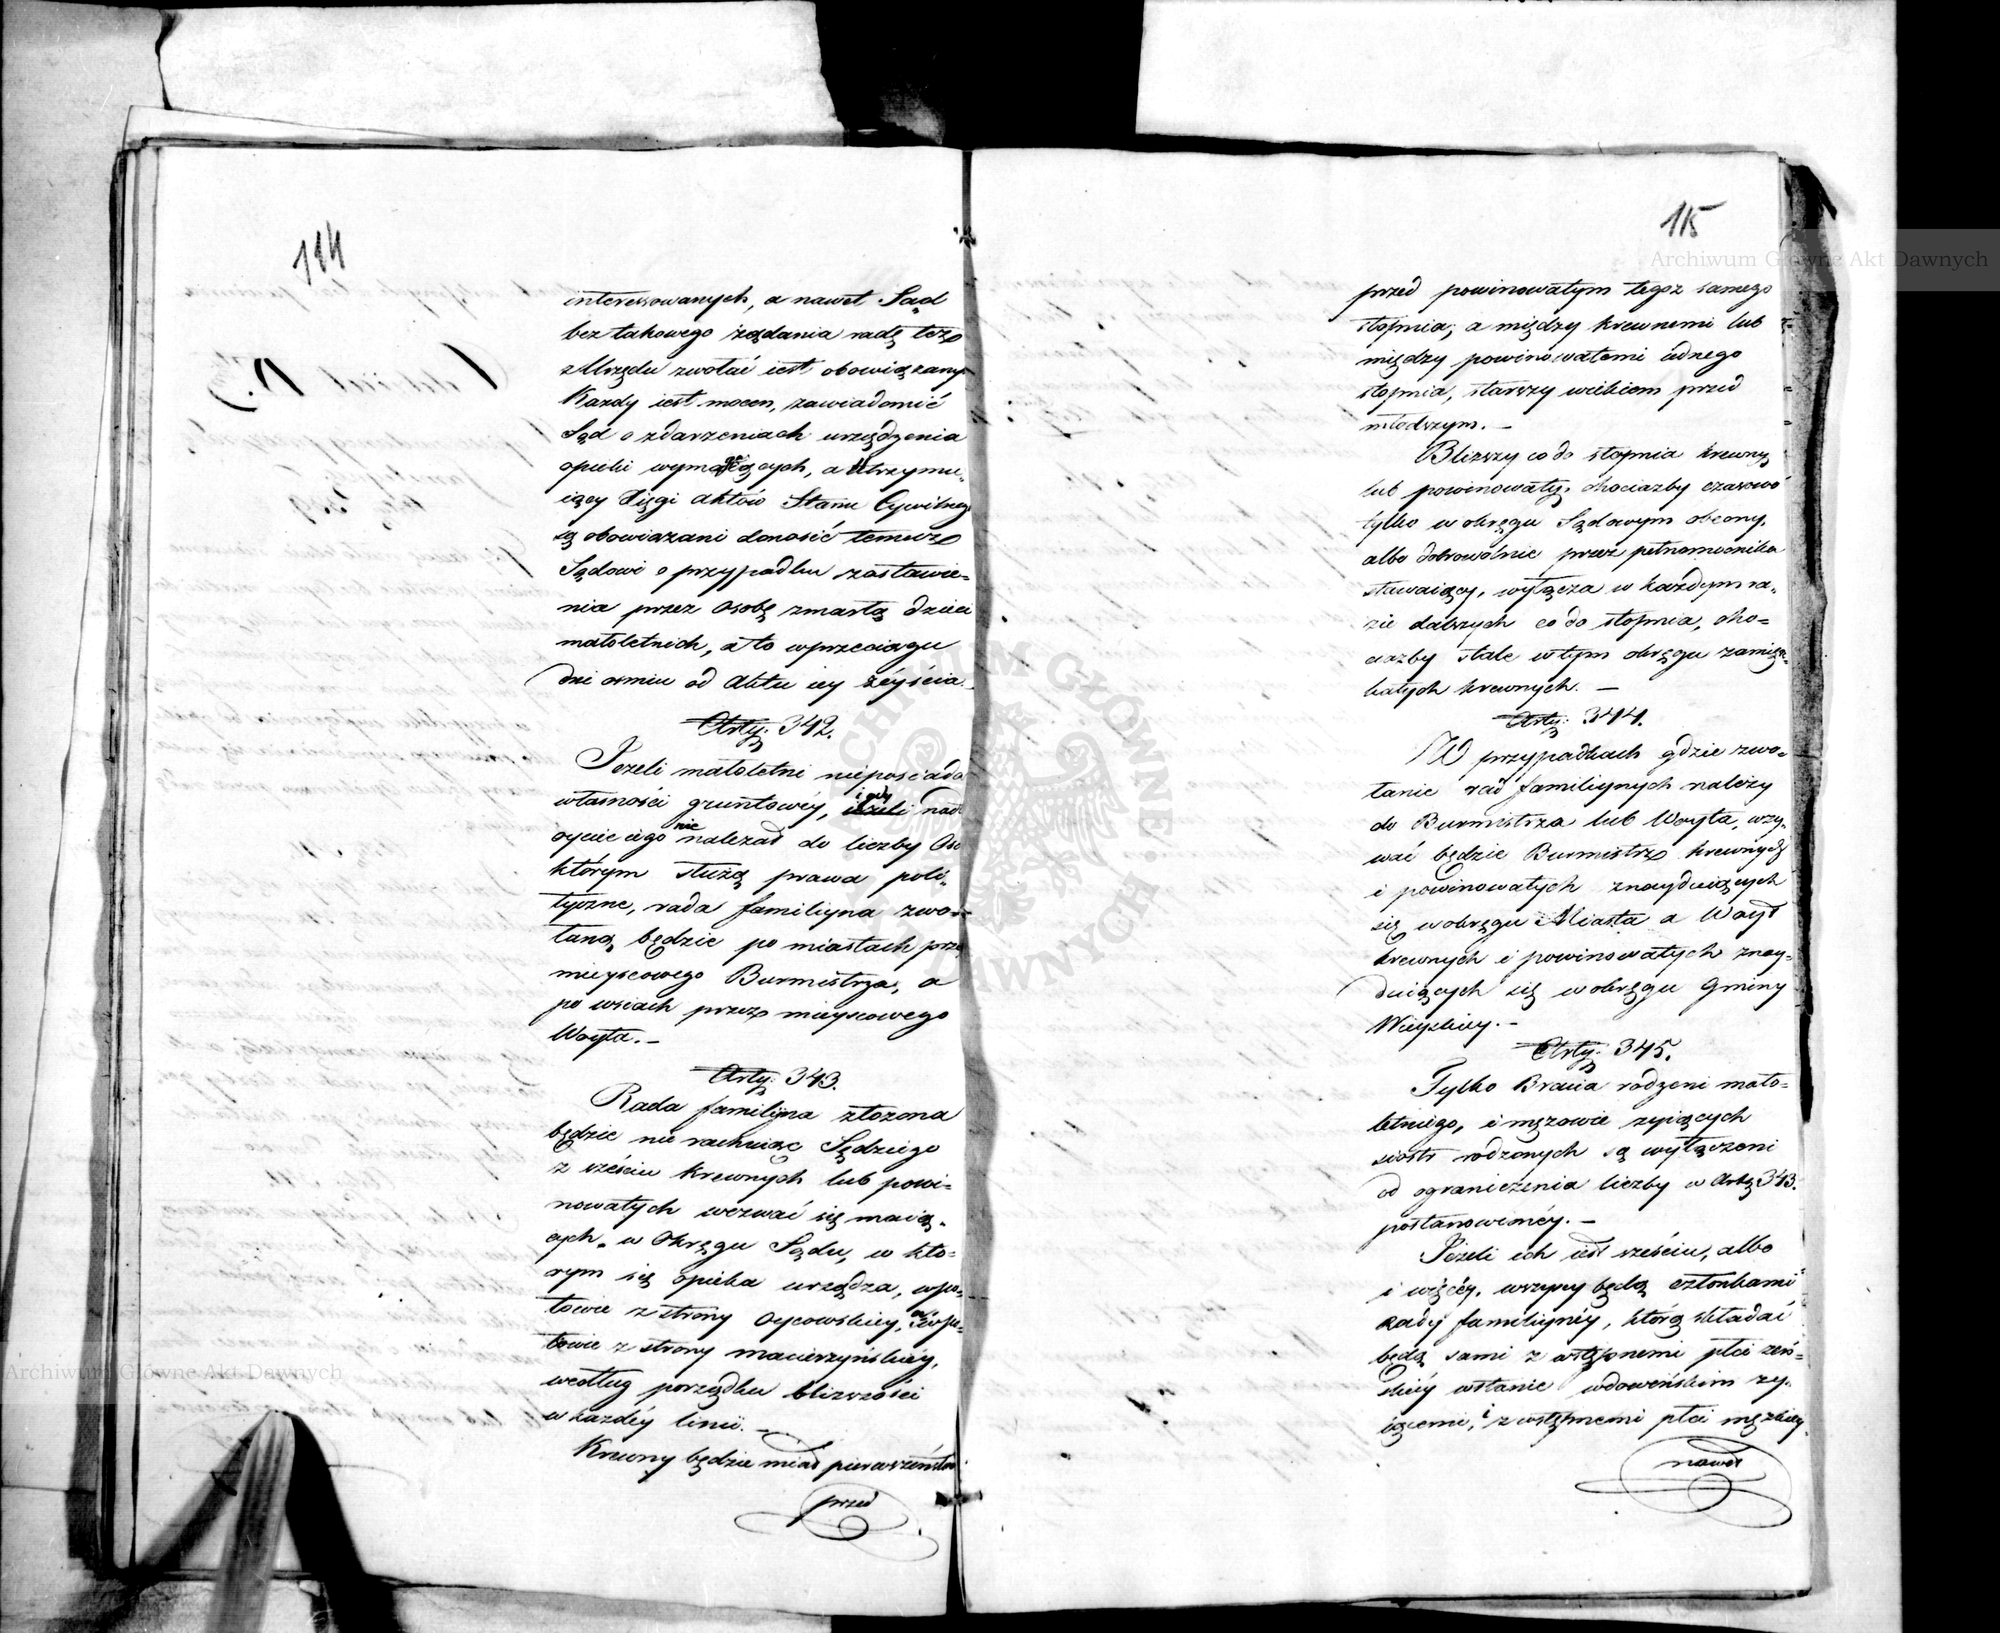 114
interessowanych, a nawet Sąd
bez takowego żądania radę też
z Urzędu zwołać iest obowiązany.
Każdy iest mocen, zawiadomić
Sąd o zdarzeniach urządzenia
opieki wymagaiących, a utrzymu-
iący Xięgi Aktów Stanu Cywilnego
są obowiązani donosić temuż
Sądowi o przypadku zostawie-
nia przez osobę zmarłą dzieci
małoletnich, a to w przeciągu
dni ośmiu od Aktu iey zeyścia.
Arty: 342.
Jeżeli małoletni nieposiada
własności gruntowéy, i gdy nad
oyciec iego nie należał do liczby Osó
którym służą prawa poli-
tyczne, rada familiyna zwo-
łaną będzie po miastach prze
mieyscowego Burmistrza, a
po wsiach przez mieyscowego
Woyta.-
Arty: 343.
Rada familiyna złożona
będzie nie rachuiąc Sędziego
z sześciu krewnych lub powi-
nowatych wezwać się maią-
cych, w Okręgu Sądu, w któ-
rym się opieka urządza, w po-
łowie z strony Oycowskiéy, a w po-
łowie z strony macierzyńskiéy,
według porządku bliższości
w każdéy linii.-
Krewny będzie miał pierwszeństwo
przed
115
przed powinowatym tegoż samego
stopnia; a między krewnemi lub
między powinowatemi iednego
stopnia, starszy wiekiem przed
młodszym.-
Bliższy co do stopnia krewny
lub powinowaty, chociażby czasowo
tylko w okręgu Sądowym obecny,
albo dobrowolnie przez pełnomocnika
stawaiący, wyłącza w każdym ra-
zie dalszych co do stopnia, cho-
ciażby stale w tym okręgu zamiesz-
kałych krewnych.-
Arty: 344.
W przypadkach gdzie zwo-
łanie rad familiynych należy
do Burmistrza lub Woyta, wzy-
wać będzie Burmistrz krewnych
i powinowatych znayduiących
się w obrębu Miasta a Woyt
krewnych i powinowatych znay-
duiących się w obrębu Gminy
Wieyskiey.-
Arty: 345.
Tylko Bracia rodzeni mało-
letniego, i mężowie żyiących
siostr rodzonych są wyłączeni
od ograniczenia liczby w Arty 343.
postanowionéy.-
Jeżeli ich iest sześciu, albo
i więcéy, wszyscy będą członkami
Rady familiynéy, którą składać
będą sami z wstępnemi płci żeń-
skiéy w stanie wdowieńskim ży-
iącemi, i z wstępnemi płci męzkiey,
nawet
Archiwum Główne Akt Dawnych
Archiwum Główne Akt Dawnych
ARCHIWUM GŁÓWNE AKT DAWNYCH